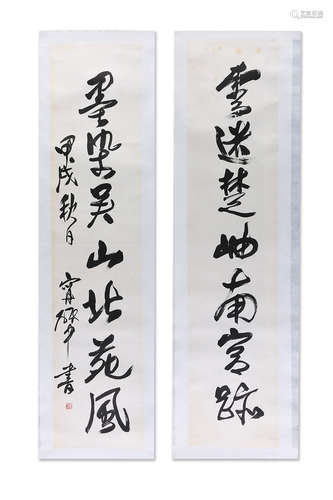 迷楚岫南宮跡
墨染吳山北苑風
甲戌秋日
書